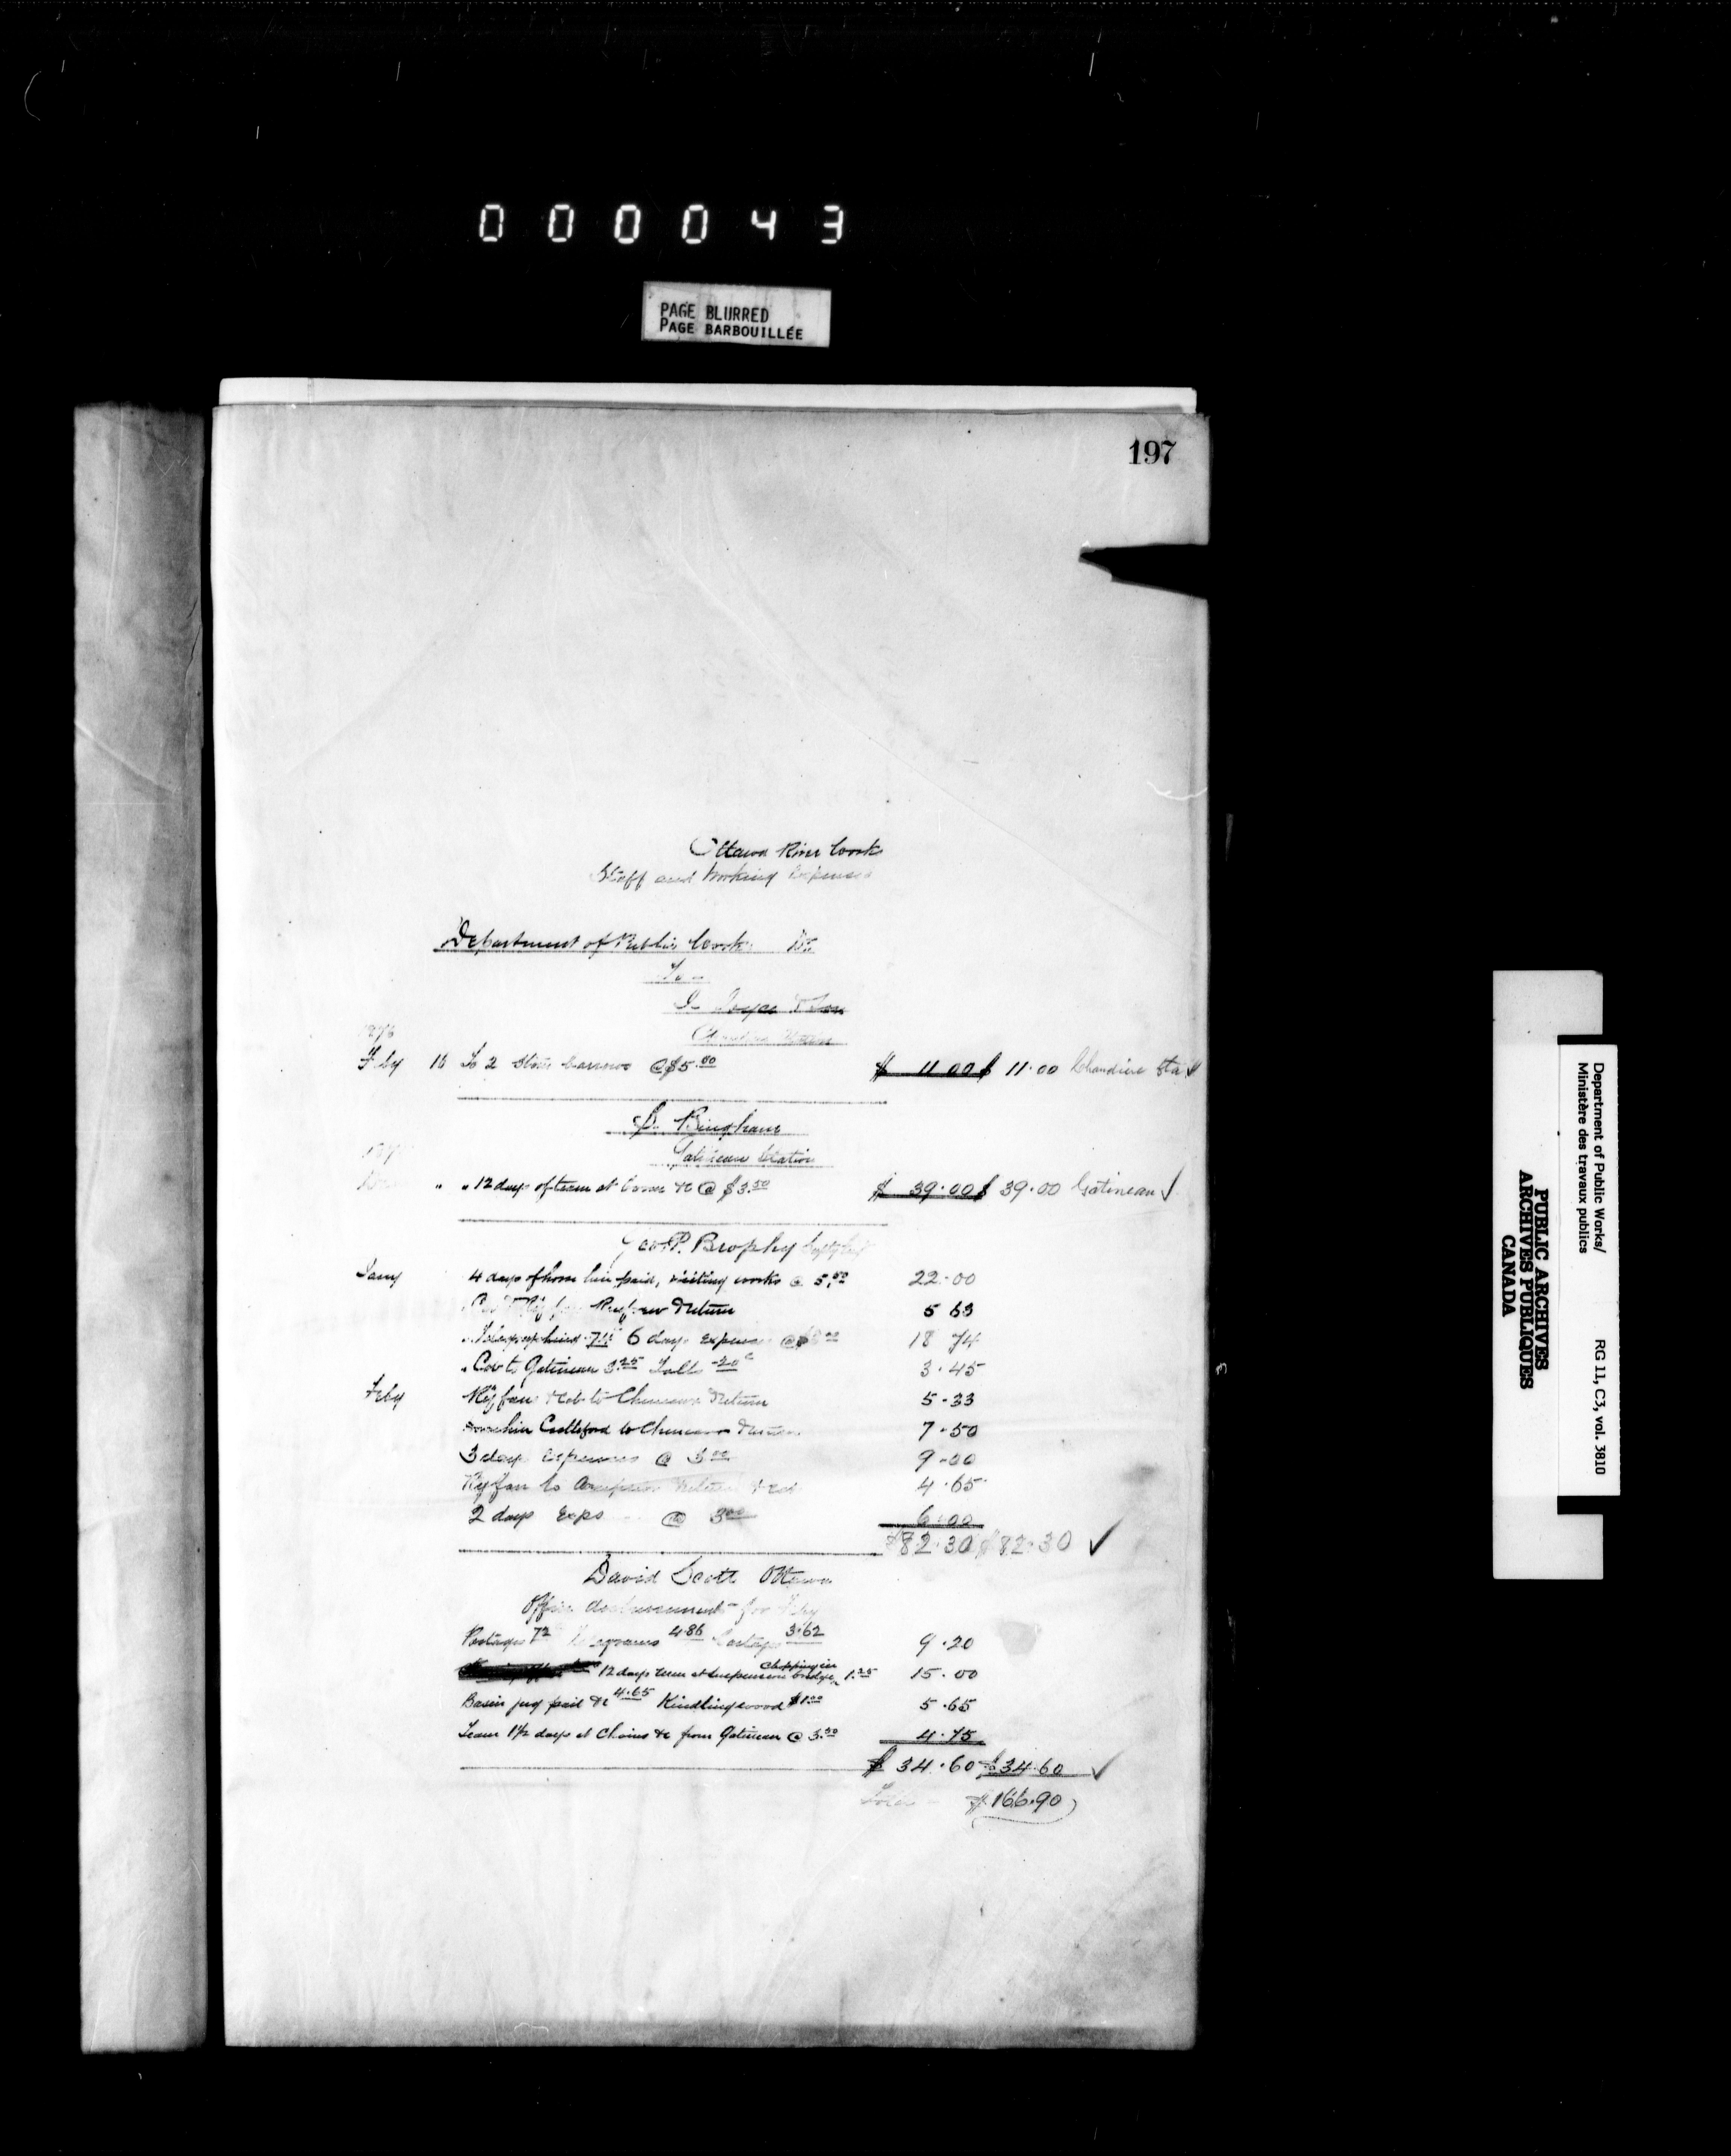 000043
PAGE BLURRED
PAGE BARBOUILLÉE
197
Ottawa River Works
Staff and Working Expenses
Department of Public Works Dr
To
& Son
1876
Feby 16 To 2 Stone barrows @ $5.50 $ 11.00 $ 11.00 Chaudiere Sta ✓
Bingham
Gatineau Station
" " 12 days of team at boom &c @ $3.50 $ 39.00 $ 39.00 Gatineau ✓
Geo. P. Brophy
Jany 4 days of horse hire paid, visiting works @ 5.50 22.00
Renfrew & return 5 63
" Telegraphing .74 6 days expenses @ $3.00 18 74
" Cab to Gatineau 3.25 Tolls .20 c 3.45
Feby Ry fare & Cab to Cheneaux & return 5.33
hire Castleford to Cheneaux & return 7.50
3 days expenses @ 3.00 9.00
Ry fare to Arnprior & return & cab 4.65
2 days Exps @ 3.00 6.00
$82.30 $82.30 ✓
David Scott Ottawa
Office disbursements for Feby
Postages 72 Telegrams 4.86 Cartage 3.62 9.20
12 days team at Suspension bridge 1.25 15.00
Basin jug pail &c 4.65 Kindling wood $1.00 5.65
Team 1½ days at Chains &c from Gatineau @ 3.50 4.75
$ 34.60 $34.60 ✓
Total $166.90
3
Department of Public Works/
Ministère des travaux publics
RG 11, C3, vol. 3810
PUBLIC ARCHIVES
ARCHIVES PUBLIQUES
CANADA